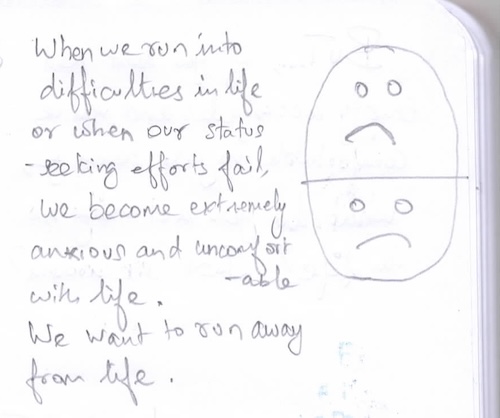 When we run into
difficulties in life
or when our status
-seeking efforts fail,
we become extremely
anxious and uncomfort
-able
with life.
We want to run away
from life.